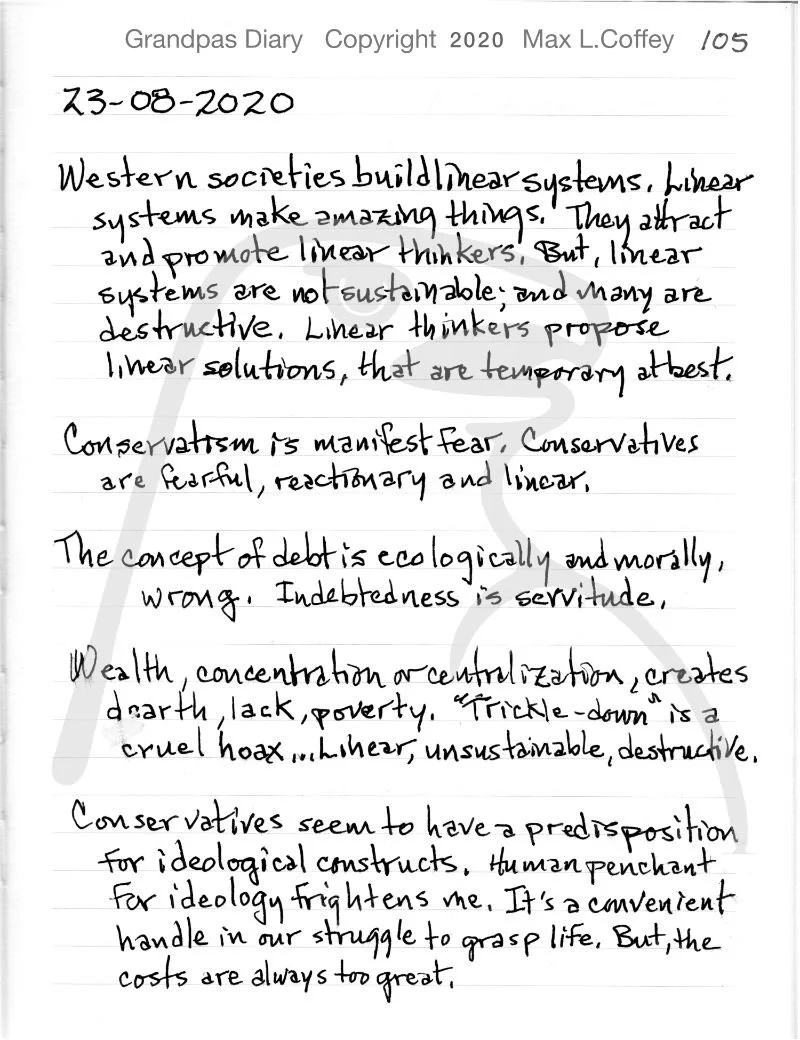 Grandpas Diary Copyright 2020 Max L.Coffey 105
23-08-2020
Western societies build linear systems. Linear
systems make amazing things. They attract
and promote linear thinkers. But, linear
systems are not sustainable; and many are
destructive. Linear thinkers propose
linear solutions, that are temporary at best.
Conservatism is manifest fear. Conservatives
are fearful, reactionary and linear.
The concept of debt is ecologically and morally,
wrong. Indebtedness is servitude.
Wealth, concentration or centralization, creates
dearth, lack, poverty. "Trickle-down" is a
cruel hoax... Linear, unsustainable, destructive.
Conservatives seem to have a predisposition
for ideological constructs. Human penchant
for ideology frightens me. It's a convenient
handle in our struggle to grasp life. But, the
costs are always too great.